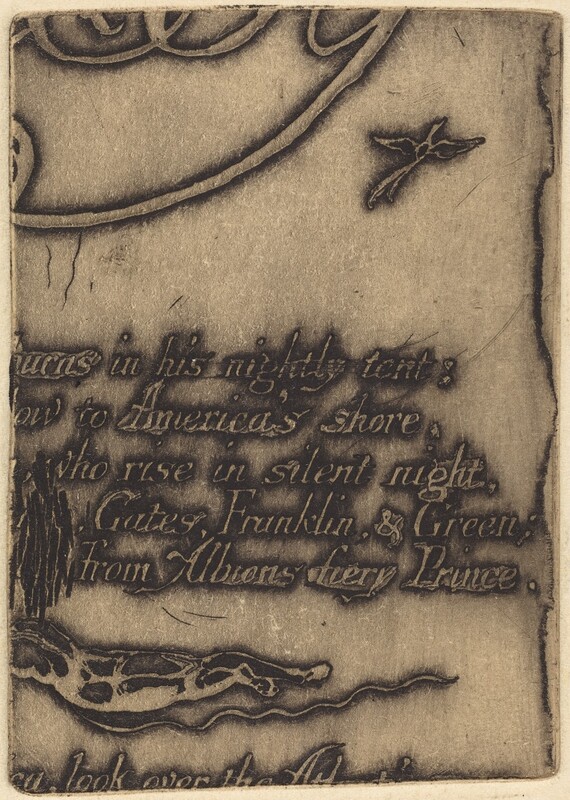 burns in his nightly tent:
ow to America's shore.
who rise in silent night,
Gates, Franklin, & Green;
from Albions fiery Prince.
look over the